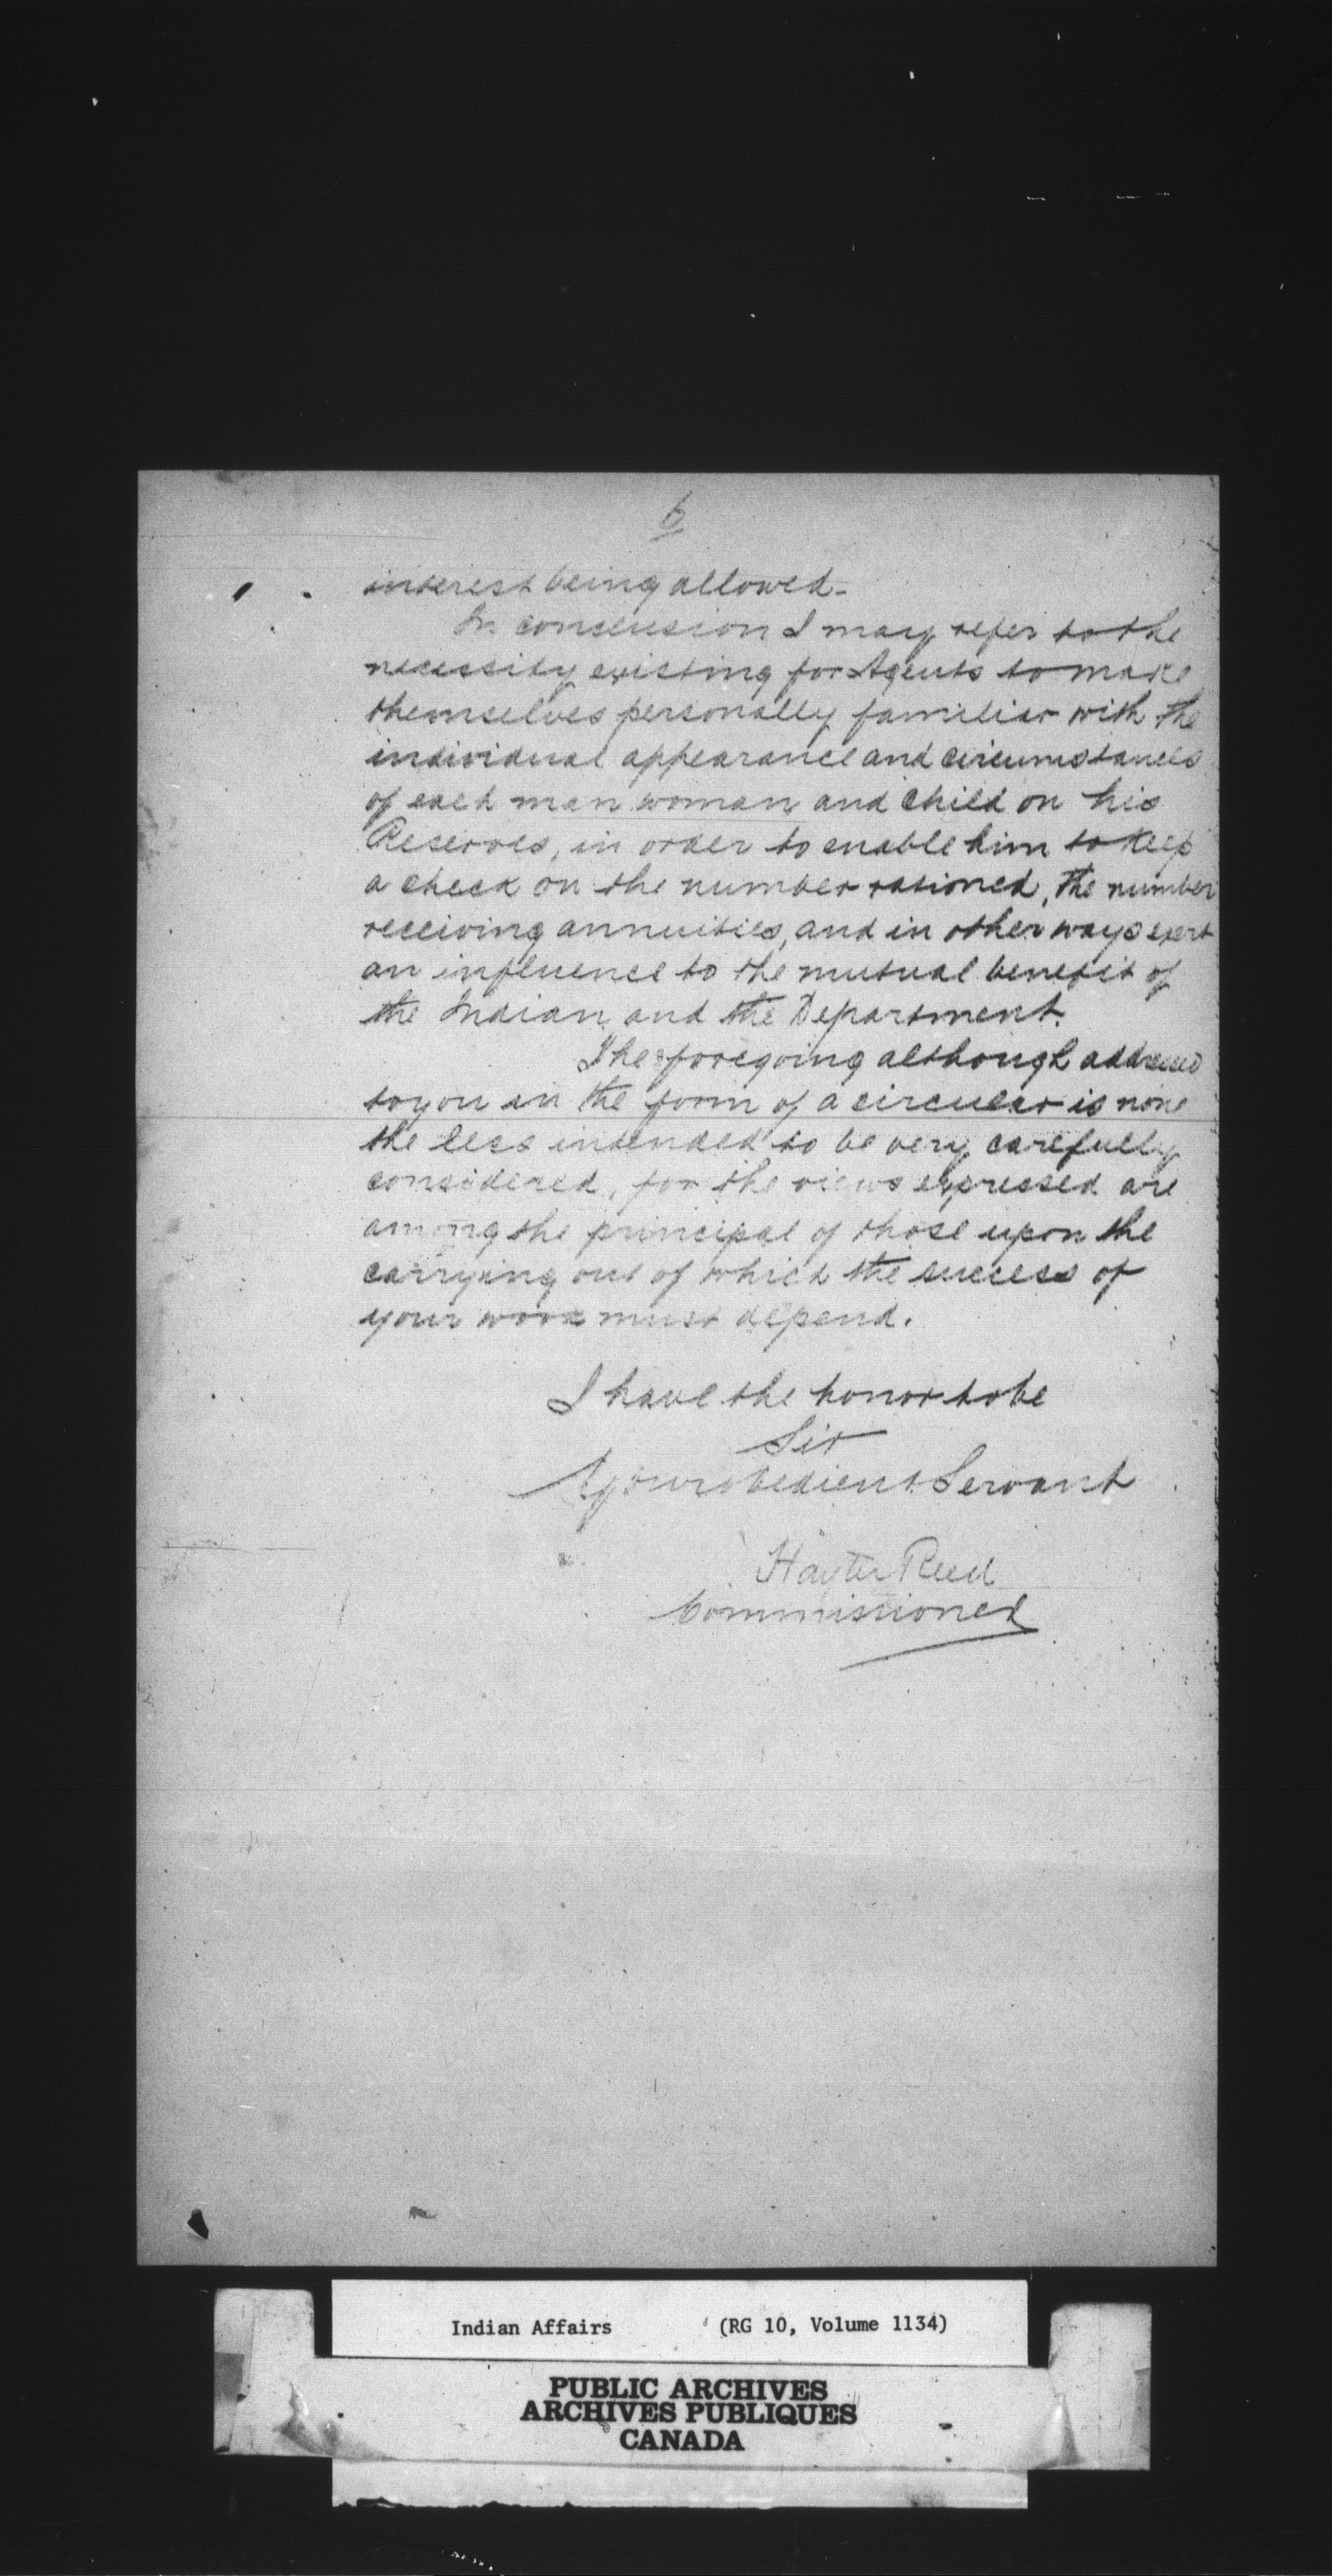 6
interest being allowed -
In conclusion I may refer to the
necessity existing for Agents to make
themselves personally familiar with the
individual appearance and circumstances
of each man woman and child on his
Reserves, in order to enable him to keep
a check on the number rationed, the number
receiving annuities, and in other ways exert
an influence to the mutual benefit of
the Indian and the Department.
The foregoing although addressed
to you in the form of a circular is none
the less intended to be very carefully
considered, for the views expressed are
among the principal of those upon the
carrying out of which the success of
your work must depend.
I have the honor to be
Sir
Your obedient Servant
Hayter Reed
Commissioner
Indian Affairs (RG 10, Volume 1134)
PUBLIC ARCHIVES
ARCHIVES PUBLIQUES
CANADA